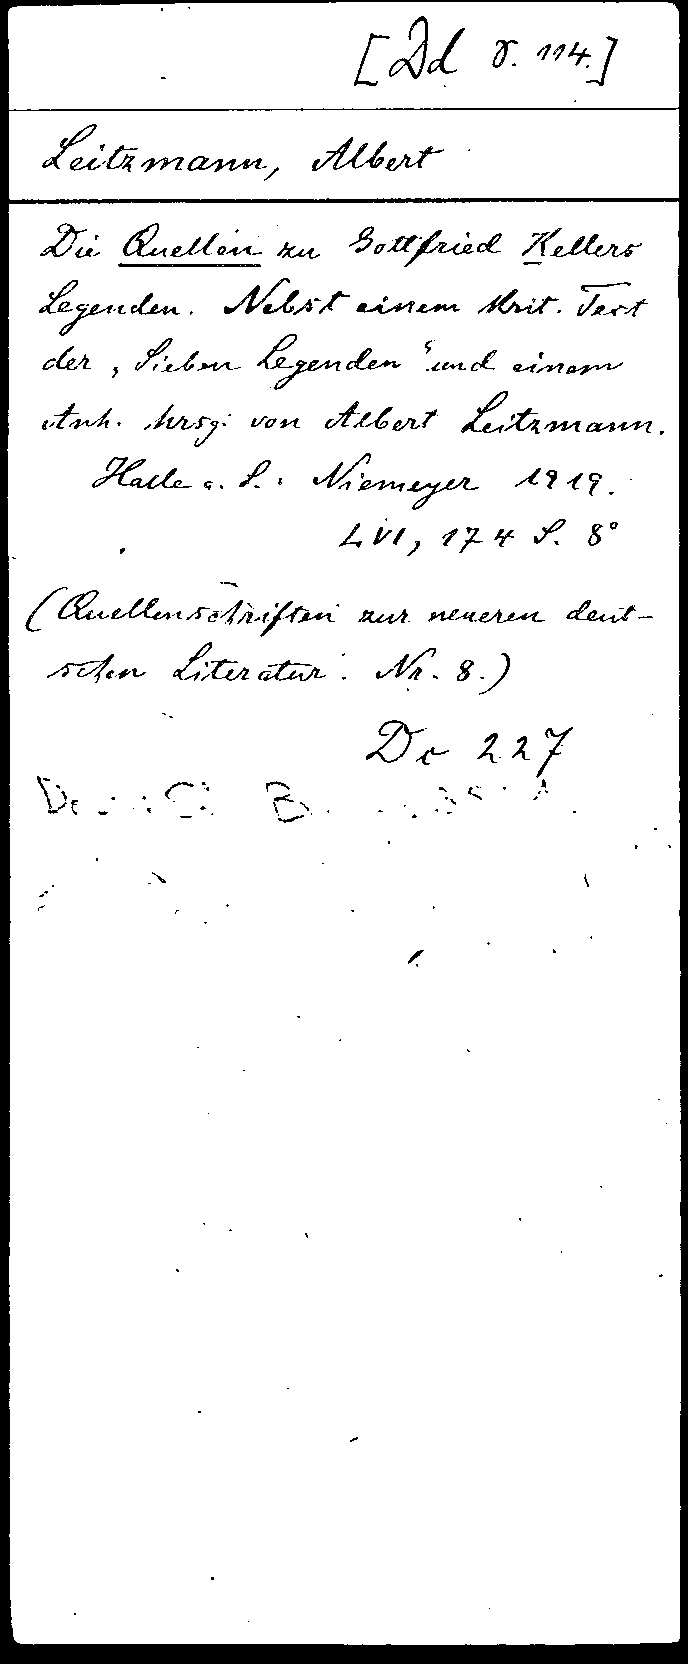 [Dd γ. 114.]
Leitzmann, Albert
Die Quellen zu Gottfried Kellers
Legenden. Nebst einem krit. Text
der „Sieben Legenden“ und einem
Anh. hrsg. von Albert Leitzmann.
Halle a. S.: Niemeyer 1919.
LVI, 174 S. 8°
(Quellenschriften zur neueren deut-
schen Literatur. Nr. 8.)
Dc 227